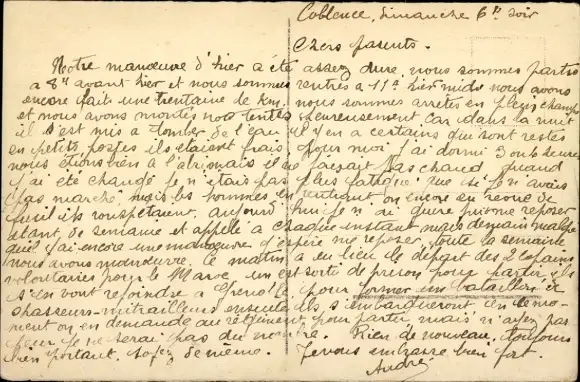 Coblence, Dimanche 6h soir
Chers parents.
Notre manœuvre d'hier a été assez dure, nous sommes partis
a 8h avant hier et nous sommes rentrés a 11h hier midi nous avons
encore fait une trentaine de Km, nous nous sommes arretés en plein champs
et nous avons montés nos tentes heureusement, car dans la nuit
il s'est mis a tomber de l'eau, il y en a certains qui sont restés
en petits postes ils étaient frais pour moi j'ai dormi 3 ou 4 heures
nous étions bien a l'abri mais il ne faisait pas chaud quand
j'ai été changé je n'étais pas plus fatigué que si je n'avais
pas marché, mais les hommes en rentrant on encore eu revue de
fusil ils rouspetaient, aujourd'hui je n'ai guère pu me reposer
étant de semaine et appelé a chaque instant mais demain malgré
qu'il y ai encore une manœuvre j'espère me reposer, toute la semaine
nous avons manœuvré. Ce matin a eu lieu le départ des 2 copains
volontaires pour le Maroc, un est sorti de prison pour partir, ils
s'en vont rejoindre a Grenoble pour former un bataillon de
chasseurs-mitrailleurs ensuite ils s'embarqueront. En ce mo-
ment on en demande au régiment pour partir mais n'ayez pas
peur je ne serai pas du nombre. Rien de nouveau, toujours
bien portant. Soyez de même. Je vous embrasse bien fort.
André